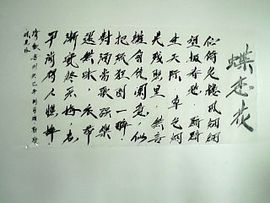 蝶恋花
伫倚危楼风细细
望极春愁黯黯
生天际草色烟
光残照里无言
谁会凭阑意拟
把疏狂图一醉
对酒当歌强乐
还无味衣带
渐宽终不悔为
伊消得人憔悴